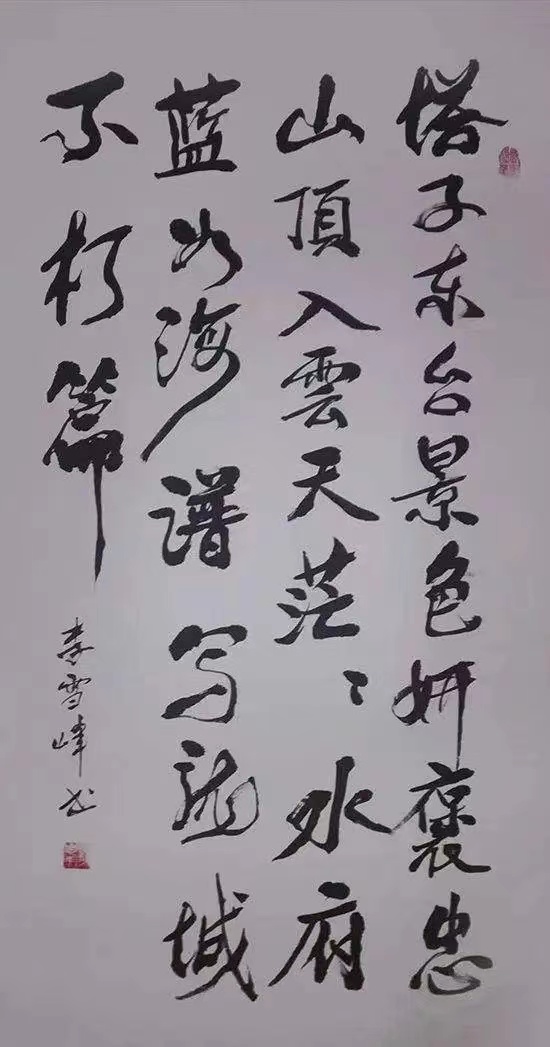 塔子东台景色妍褒忠
山頂入雲天茫〻水府
蓝如海谱写龙城
不朽篇
李雪峰书